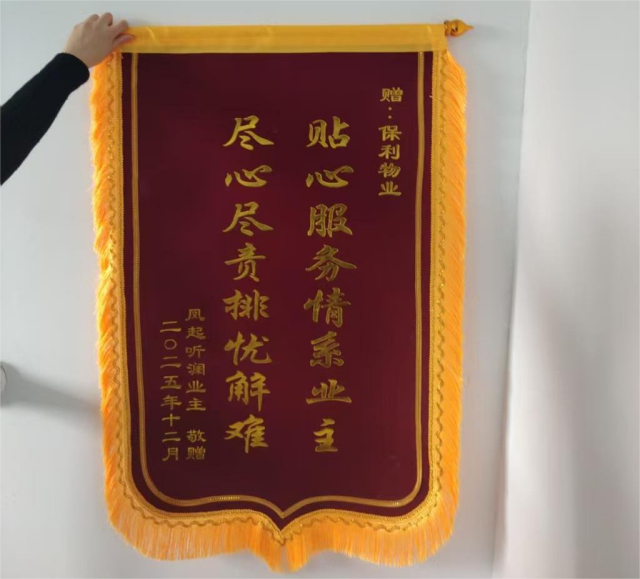 赠：保利物业
贴心服务情系业主
尽心尽责排忧解难
风起听澜业主 敬赠
二〇二五年十二月